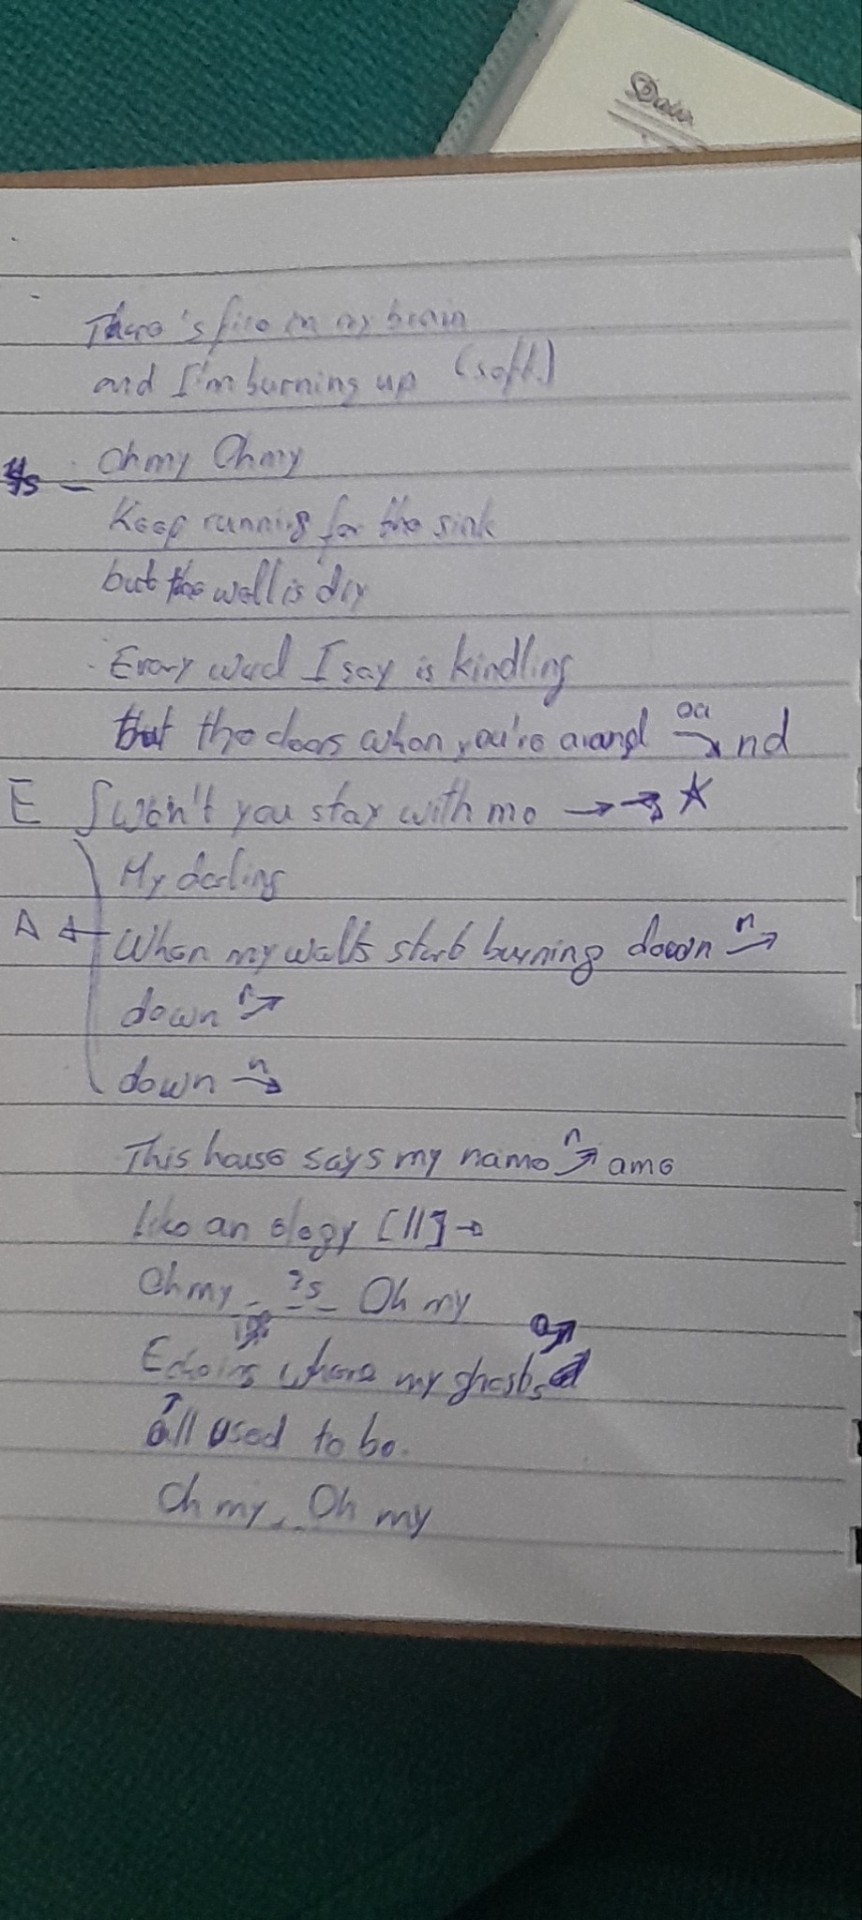 There's fire in my brain
and I'm burning up (soft)
Oh my Oh my
Keep running for the sink
but the well is dry
Every word I say is kindling
But the clears when you're around nd
E won't you stay with me → → ★
My darling
A When my walls start burning down n →
down n →
down n →
This house says my name n → ame
like an elogy [//] →
Oh my - ?s - Oh my
Echoing where my ghosts
all used to be.
Oh my, Oh my